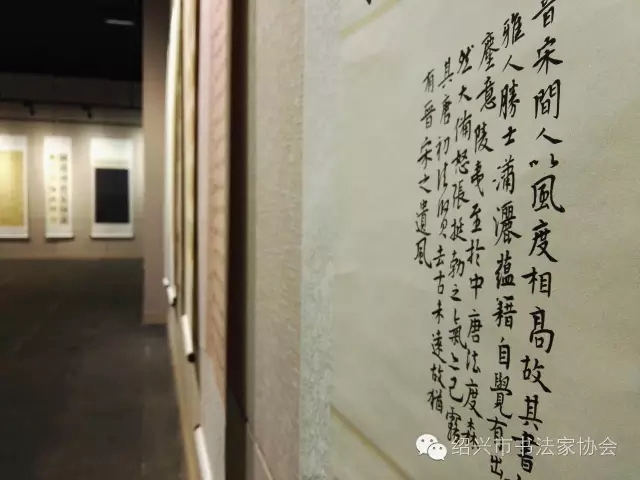 晉宋間人以風度相高故其書
雅人勝士瀟灑蘊籍自覺有出
塵意陵夷至於中唐法度森
然大備怒張挺勃之氣已露
其唐初法賢去古未遠故猶
有晉宋之遺風
绍兴市书法家协会